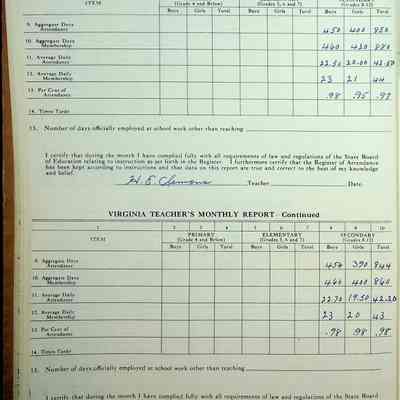 ITEM (Grade 4 and Below) (Grades 5, 6 and 7) (Grades 8-12)
Boys Girls Total Boys Girls Total Boys Girls Total
9. Aggregate Days Attendance 450 400 850
10. Aggregate Days Membership 460 420 880
11. Average Daily Attendance 22.50 20.00 42.50
12. Average Daily Membership 23 21 44
13. Per Cent of Attendance .98 .95 .97
14. Times Tardy
15. Number of days officially employed at school work other than teaching
I certify that during the month I have complied fully with all requirements of law and regulations of the State Board
of Education relating to instruction as set forth in the Register. I furthermore certify that the Register of Attendance
has been kept according to instructions and that data on this report are true and correct to the best of my knowledge
and belief.
H. E. Clemons Teacher Date.
VIRGINIA TEACHER'S MONTHLY REPORT—Continued
1 2 3 4 5 6 7 8 9 10
ITEM PRIMARY (Grade 4 and Below) ELEMENTARY (Grades 5, 6 and 7) SECONDARY (Grades 8-12)
Boys Girls Total Boys Girls Total Boys Girls Total
9. Aggregate Days Attendance 454 390 844
10. Aggregate Days Membership 460 400 860
11. Average Daily Attendance 22.70 19.50 42.20
12. Average Daily Membership 23 20 43
13. Per Cent of Attendance .98 .98 .98
14. Times Tardy
15. Number of days officially employed at school work other than teaching
I certify that during the month I have complied fully with all requirements of law and regulations of the State Board